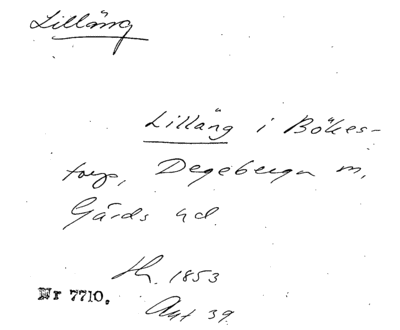 Lilläng
Lilläng i Bökes-
torp, Degeberga sn,
Gärds hd.
Hh. 1853
Nr 7710.
Akt 39.